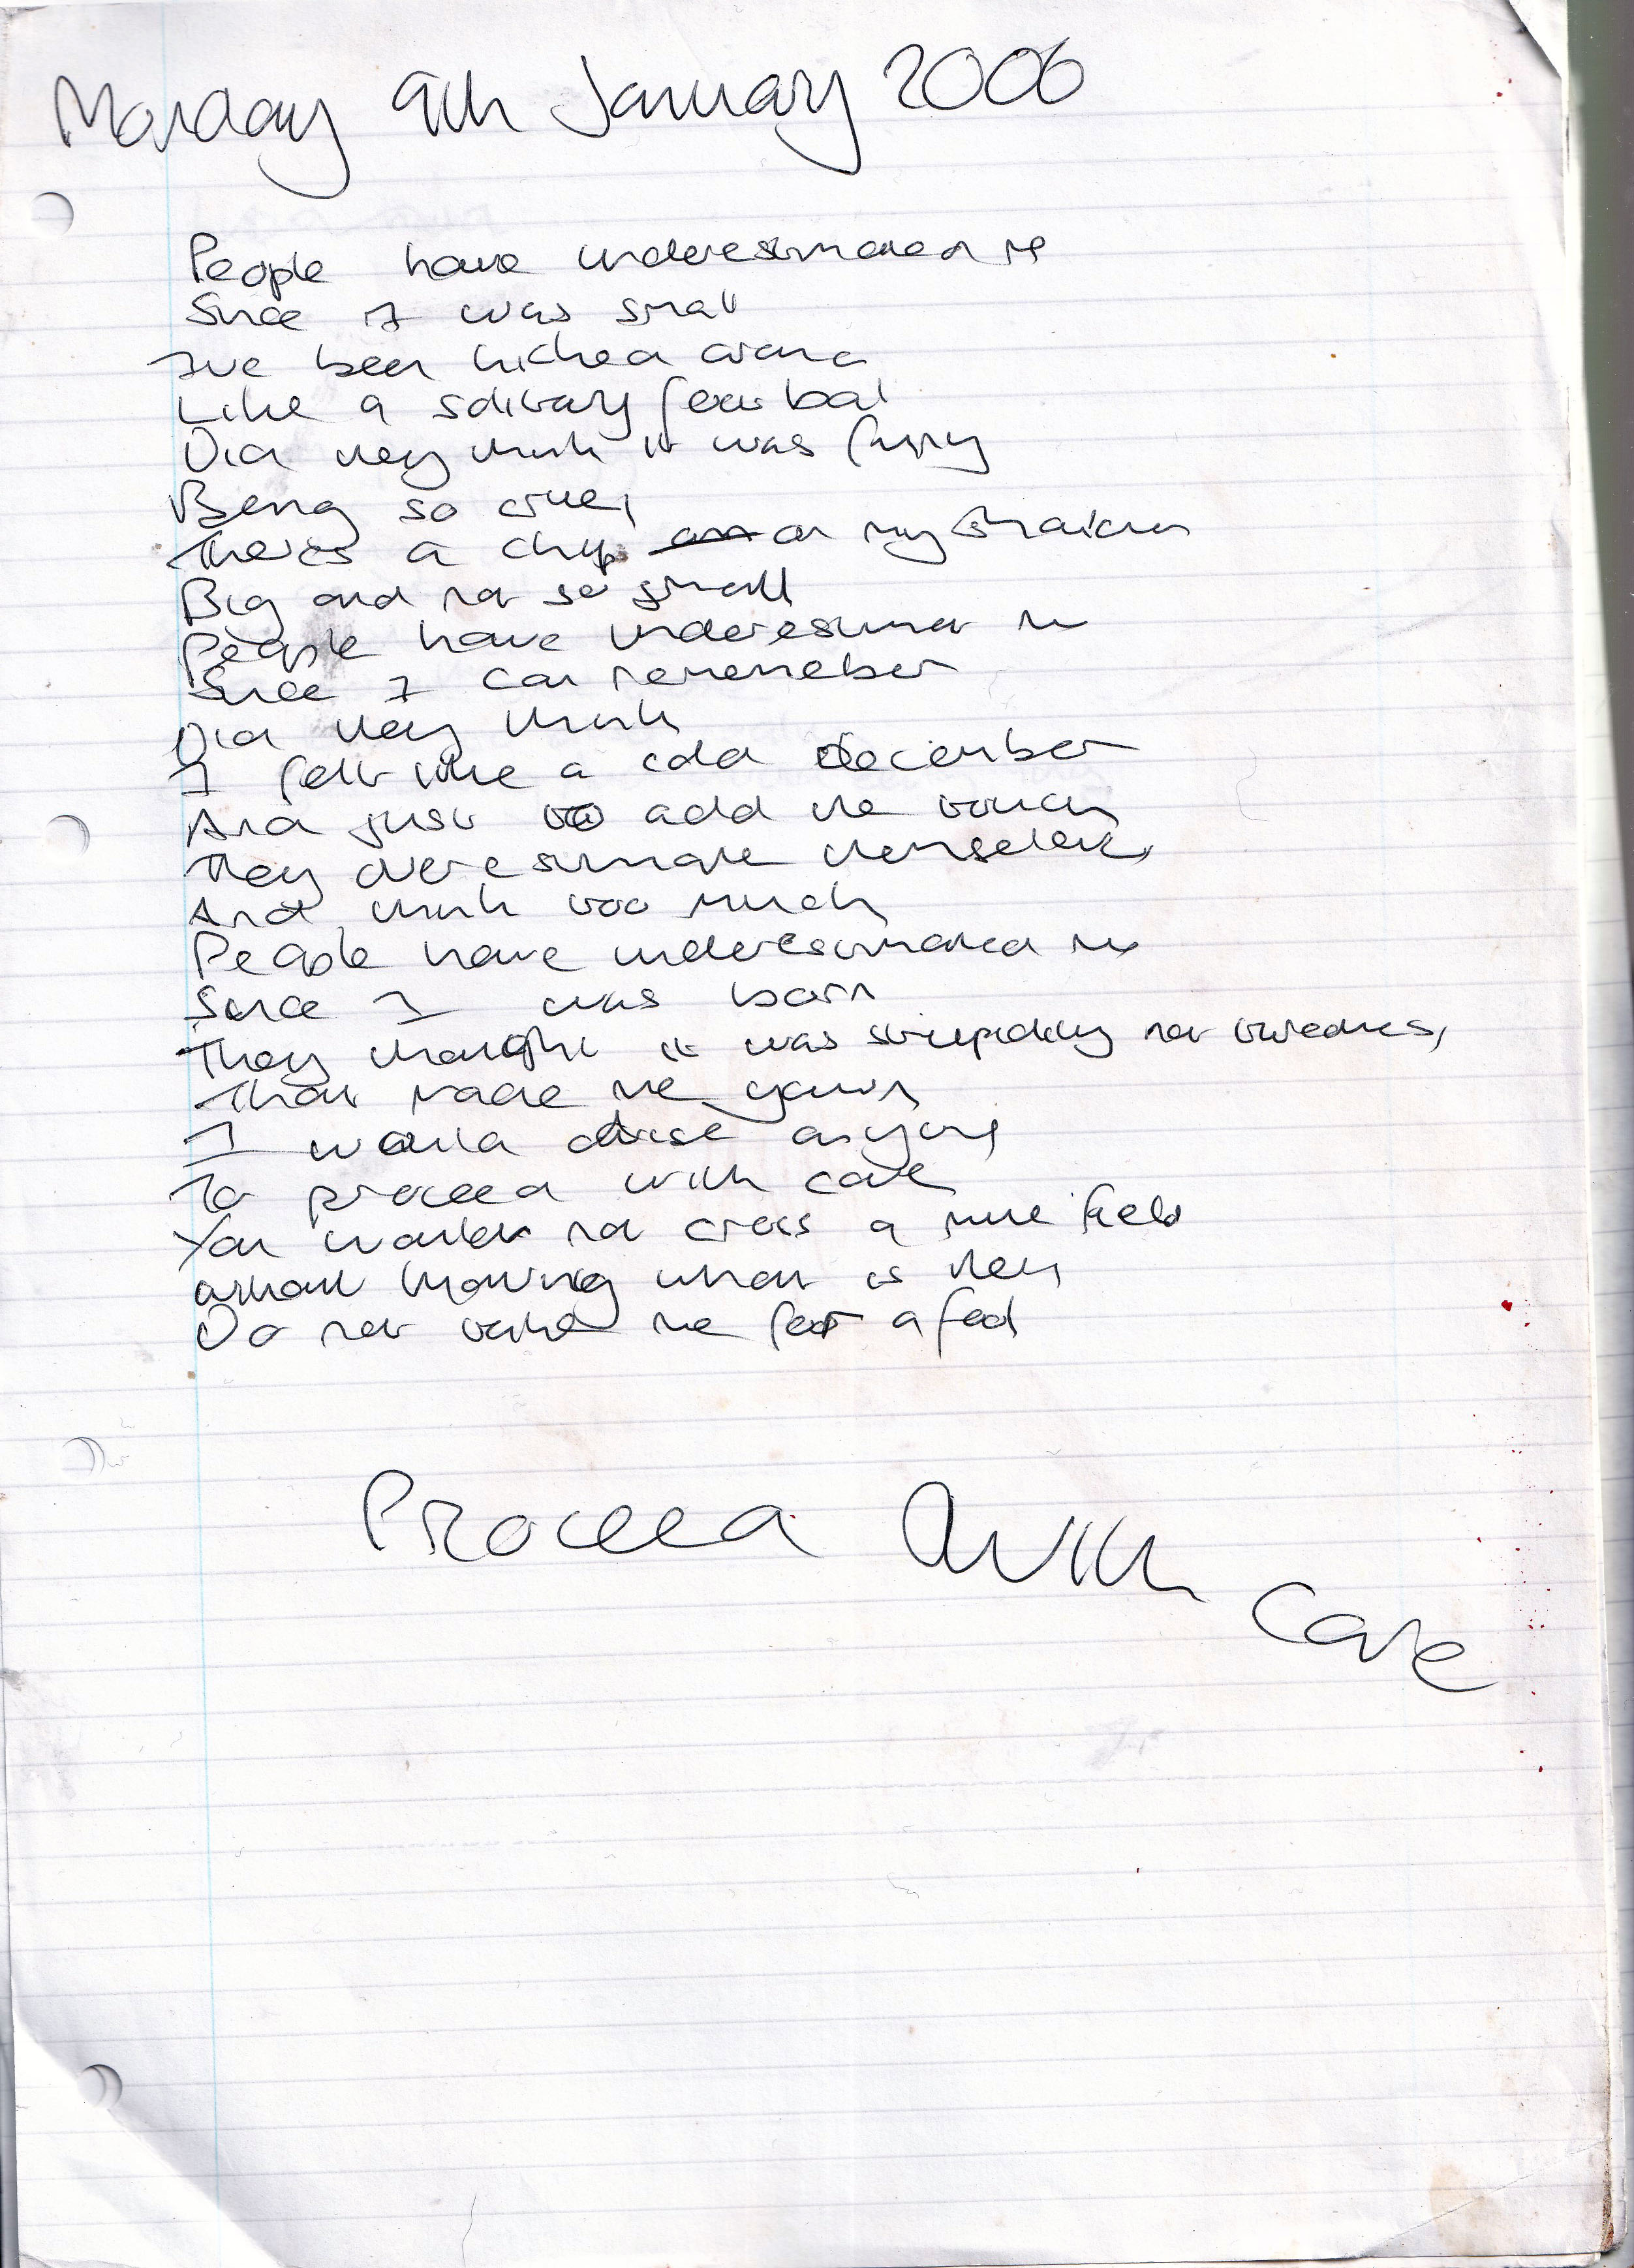 Monday 9th January 2006
People have underestimated me
Since I was small
I've been kicked around
Like a solitary football
Did they think it was funny
Being so cruel
There's a chip on my shoulder
Big and not so small
People have underestimat me
Since I can rememeber
Did they think
I felt like a cold December
And just to add the touch
They overestimate themselves
And think too much
People have underestimated me
Since I was born
They thought it was stupidity not tiredness
That made me yawn
I would advise anyone
To proceed with care
You would not cross a mine field
without knowing what is there
Do not take me for a fool
Proceed With Care